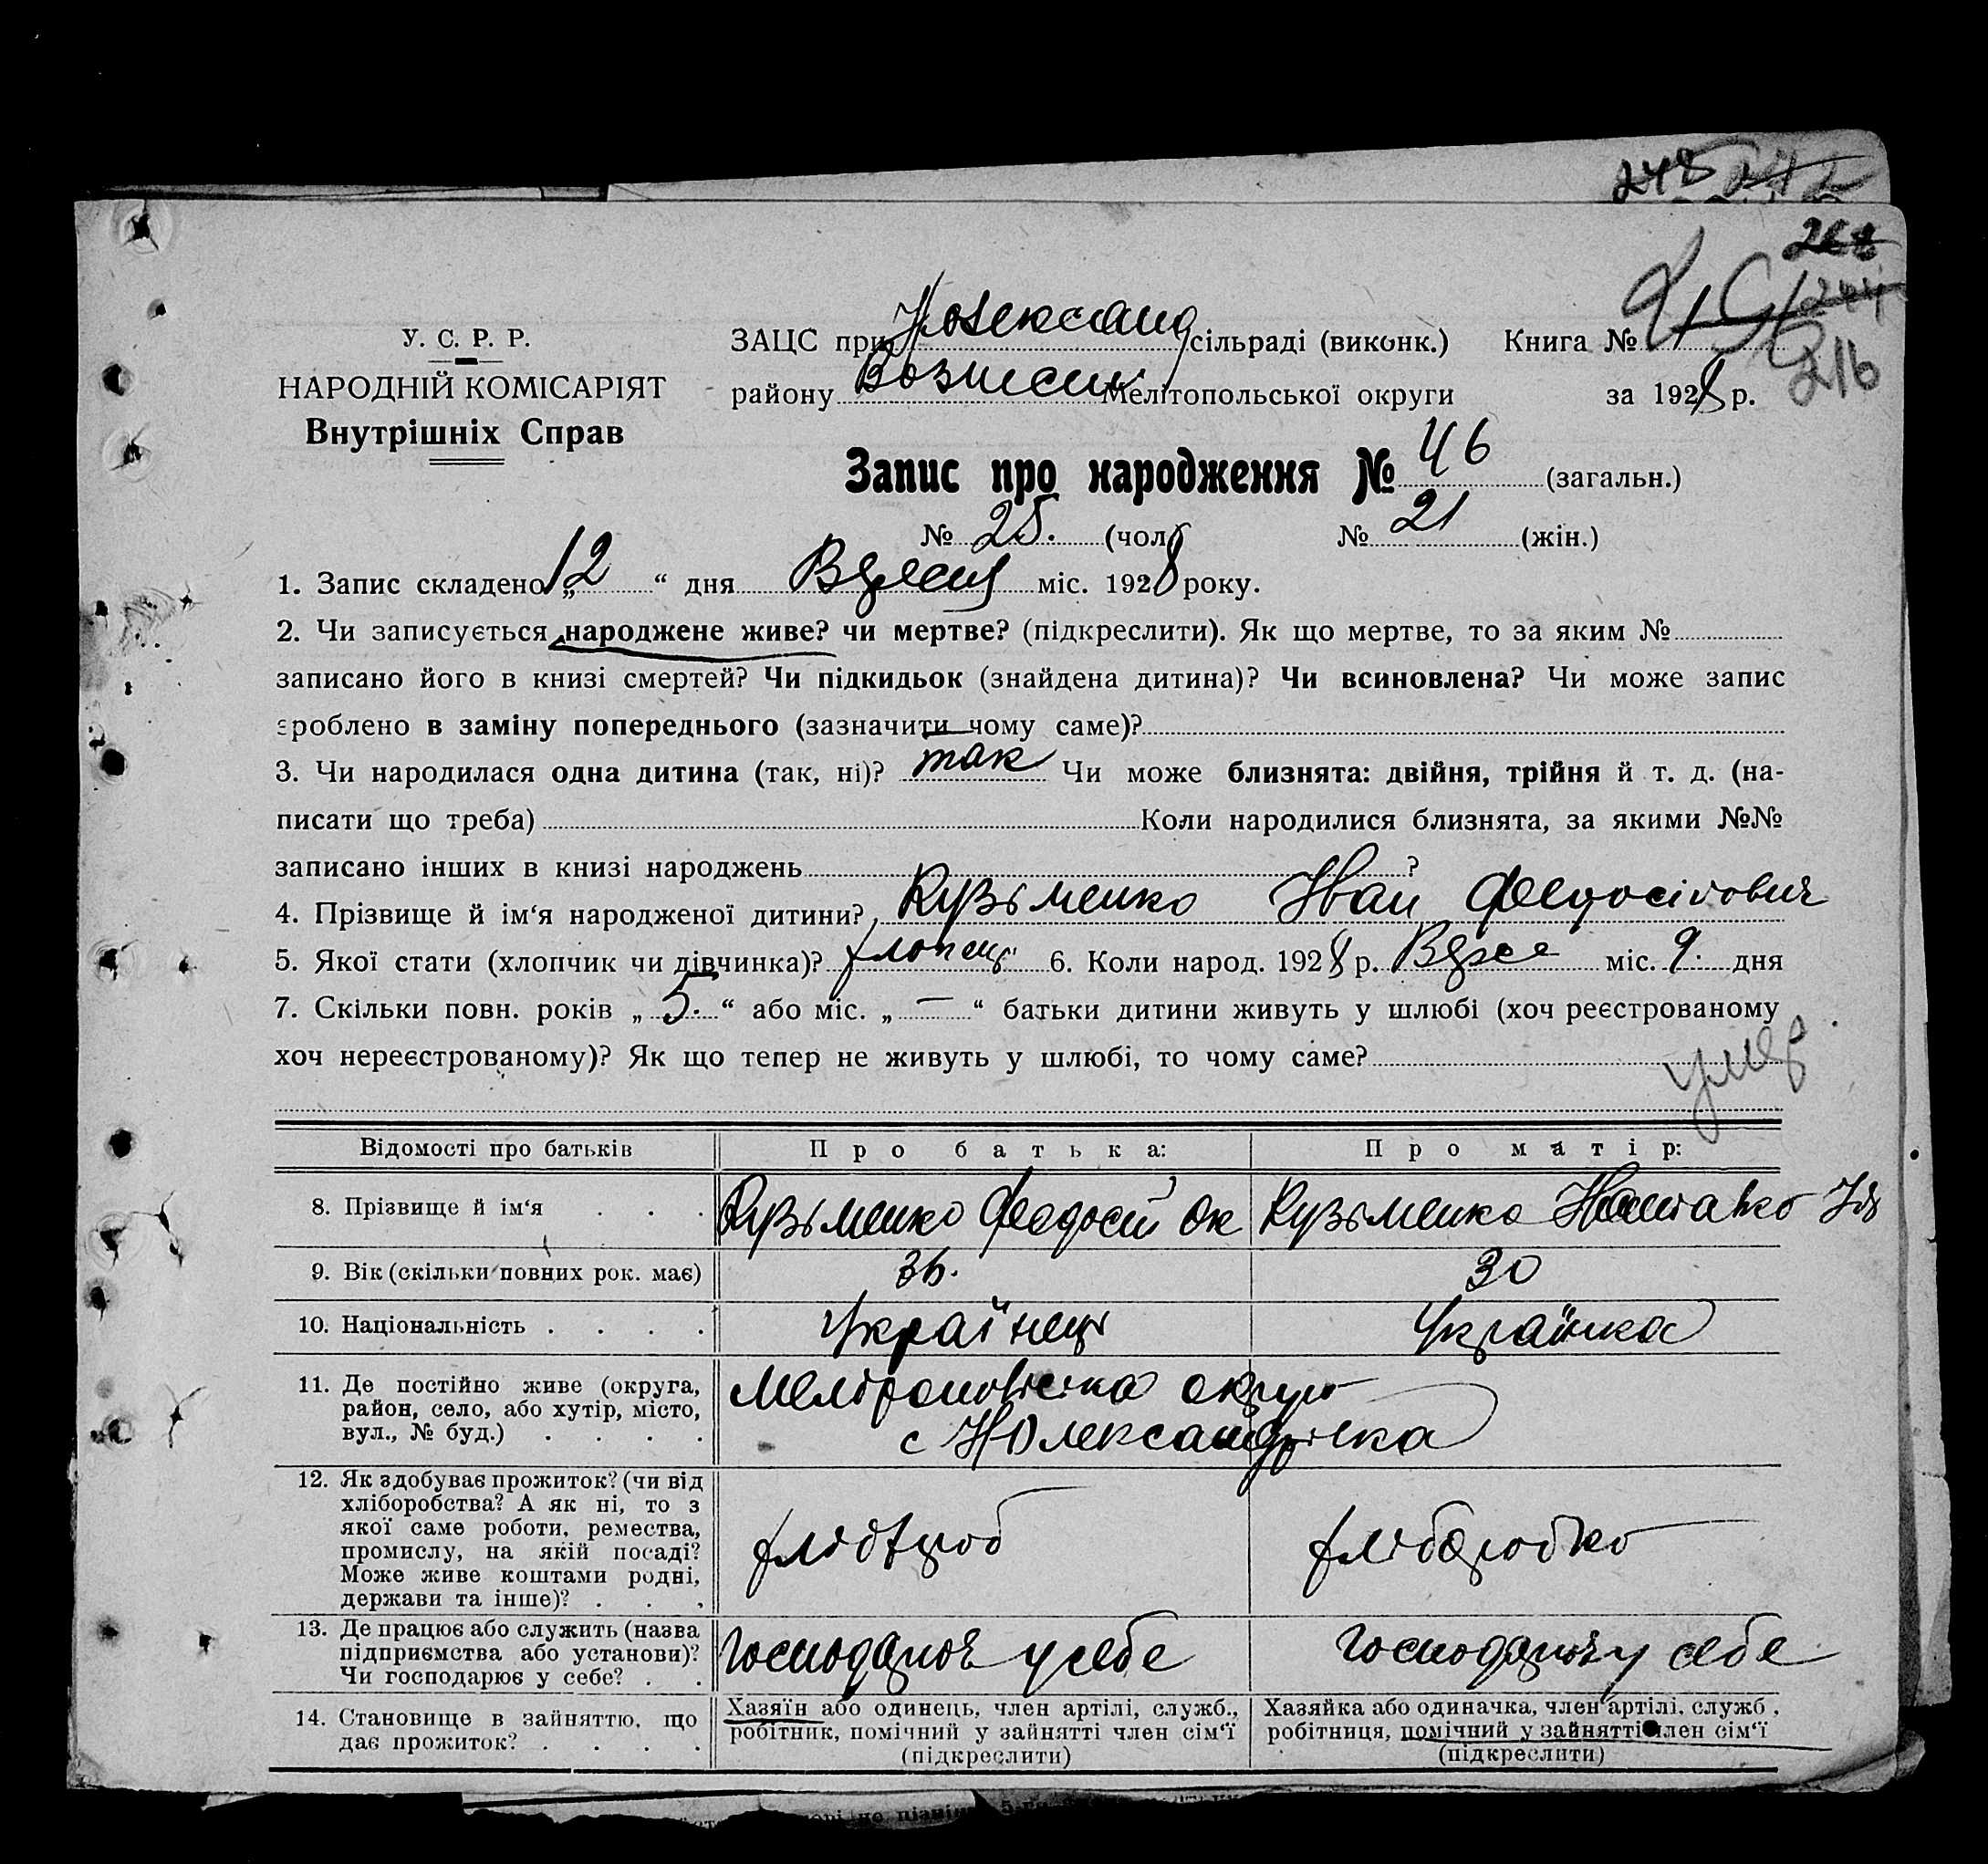 248 242
268
244
216
У. С. Р. Р.
НАРОДНІЙ КОМІСАРІЯТ
Внутрішніх Справ
ЗАЦС при Нолександ сільраді (виконк.) Книга №
району Вознесен Мелітопольської округи за 1928 р.
Запис про народження № 46 (загальн.)
№ 25. (чол.) № 21 (жін.)
1. Запис складено „12“ дня Вересня міс. 1928 року.
2. Чи записується народжене живе? чи мертве? (підкреслити). Як що мертве, то за яким №
записано його в книзі смертей? Чи підкидьок (знайдена дитина)? Чи всиновлена? Чи може запис
зроблено в заміну попереднього (зазначити чому саме)?
3. Чи народилася одна дитина (так, ні)? так Чи може близнята: двійня, трійня й т. д. (на-
писати що треба) Коли народилися близнята, за якими №№
записано інших в книзі народжень ?
4. Прізвище й ім‘я народженої дитини? Кузьменко Іван Федосієвич
5. Якої стати (хлопчик чи дівчинка)? хлопець 6. Коли народ. 1928 р. Верес міс. 9. дня
7. Скільки повн. років „5.“ або міс. „—“ батьки дитини живуть у шлюбі (хоч реєстрованому
хоч нереєстрованому)? Як що тепер не живуть у шлюбі, то чому саме?
умер
Відомості про батьків Про батька: Про матір:
8. Прізвище й ім‘я . . . Кузьменко Феодосій Ок Кузьменко
9. Вік (скільки повних рок. має) 36. 30
10. Національність . . . . Українець Українка
11. Де постійно живе (округа,
район, село, або хутір, місто,
вул., № буд.) . . . .
Мелітопольська округа
с НОлександрівка
12. Як здобуває прожиток? (чи від
хліборобства? А як ні, то з
якої саме роботи, ремества,
промислу, на якій посаді?
Може живе коштами родні,
держави та інше)? . . .
хлібороб хлібаробка
13. Де працює або служить (назва
підприємства або установи)?
Чи господарює у себе? . .
господарює у себе господарює у себе
14. Становище в зайняттю, що
дає прожиток? . . . .
Хазяїн або одинець, член артілі, служб.,
робітник, помічний у зайнятті член сім‘ї
(підкреслити)
Хазяйка або одиначка, член артілі, служб.,
робітниця, помічний у зайнятті член сім‘ї
(підкреслити)